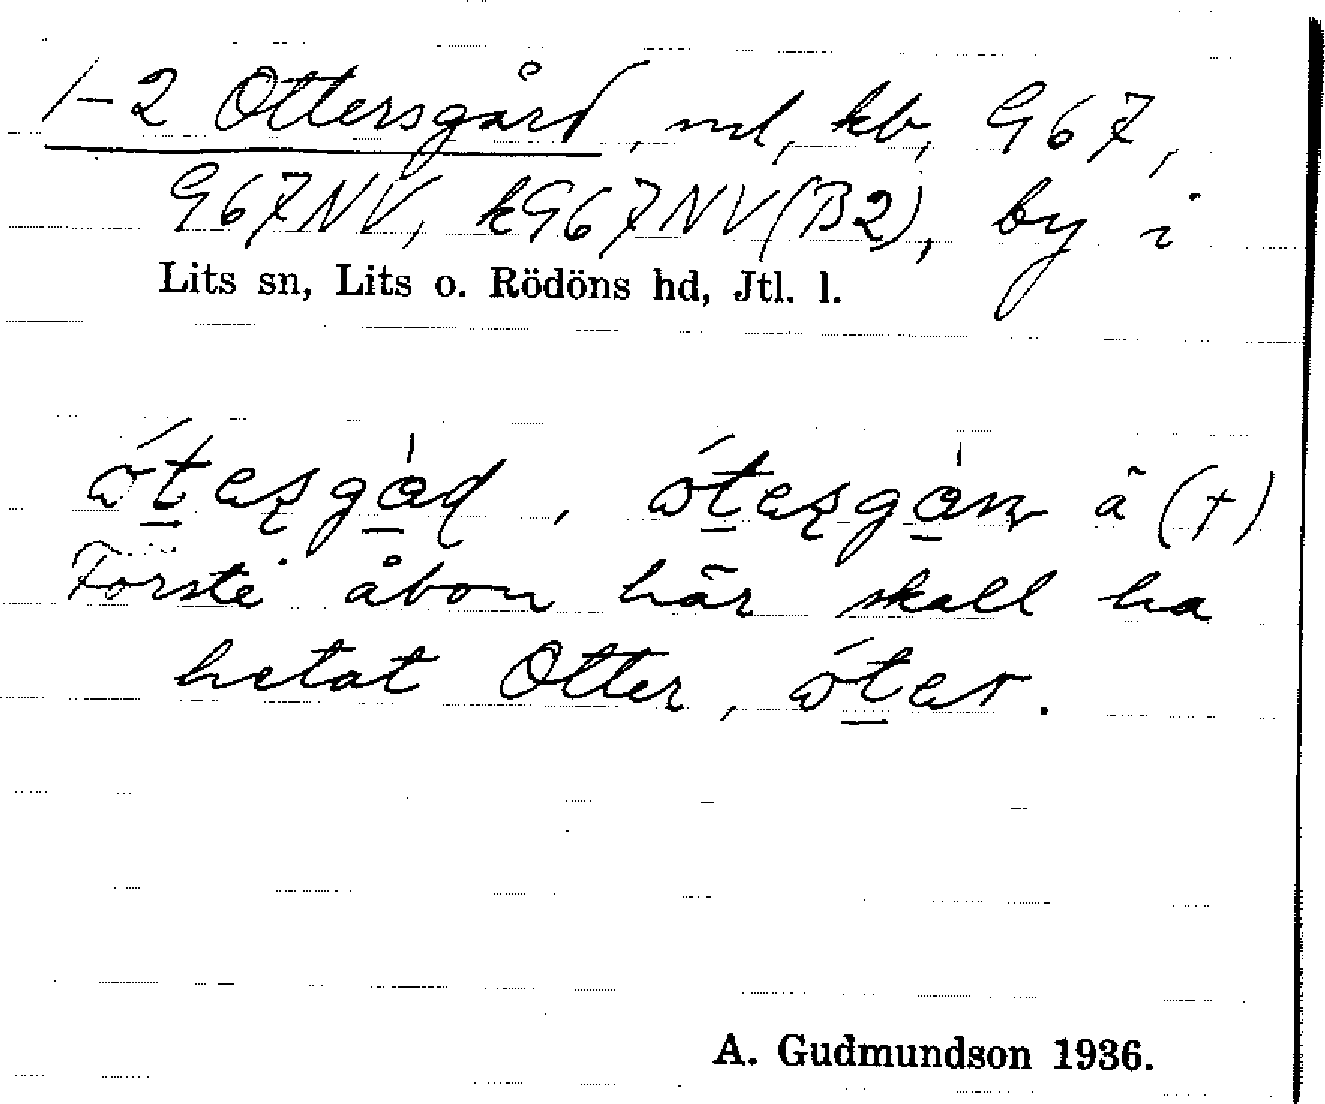 1-2 Ottersgård, md, kb, 967,
967NV, k967NV(B2), by i
Lits sn, Lits o. Rödöns hd, Jtl. l.
ótesgȧd, ótesgȧn ã (+)
Förste åbon här skall ha
hetat Otter, óter.
A. Gudmundson 1936.